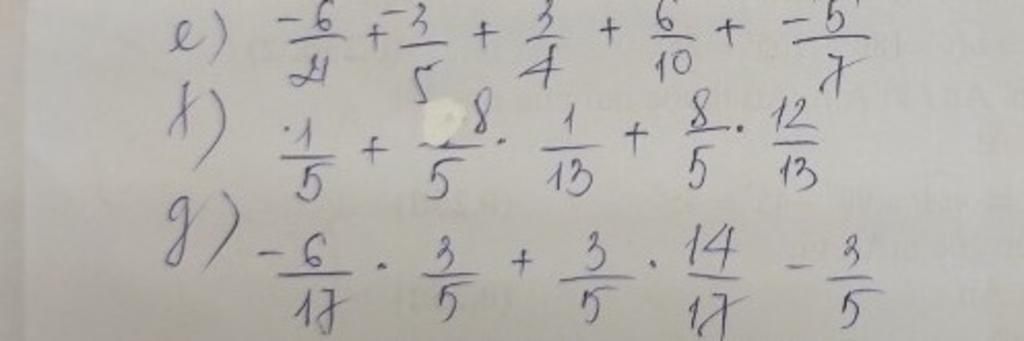 e) -6/21 + -3/5 + 3/4 + 6/10 + -5/7
f) 1/5 + 8/5 . 1/13 + 8/5 . 12/13
g) -6/17 . 3/5 + 3/5 . 14/17 - 3/5